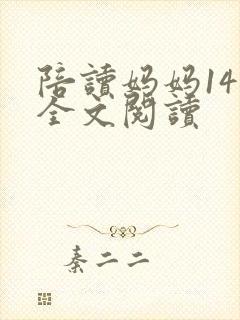 陪讀妈妈14
全文閱讀
秦二二